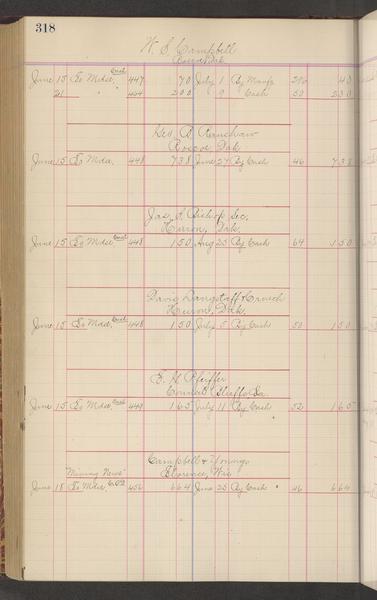 318
W. S. Campbell
Roscoe Dak
June 15 To Mdse. Cash 447 70 July 1 By Manfg 40
21 " " 464 200 " 9 " Cash 50 230
Geo. A.
Roscoe, Dak
June 15 To Mdse. 448 738 June 27 By Cash 46 738
Jas. S. Bishop Sec.
Huron, Dak.
June 15 To Mdse Cash 448 150 Aug 25 By Cash 64 150
Davis Langstaff & Crouch
Huron, Dak.
June 15 To Mdse. Cash 448 150 July 5 By Cash 50 150
E. H. Pfeiffer
Council Bluffs Ia.
June 15 To Mdse. Cash 449 165 July 11 By Cash 52 165
Campbell & Youngs
"Mining News" Florence, Wis
June 18 To Mdse. 456 664 June 25 By Cash 46 664